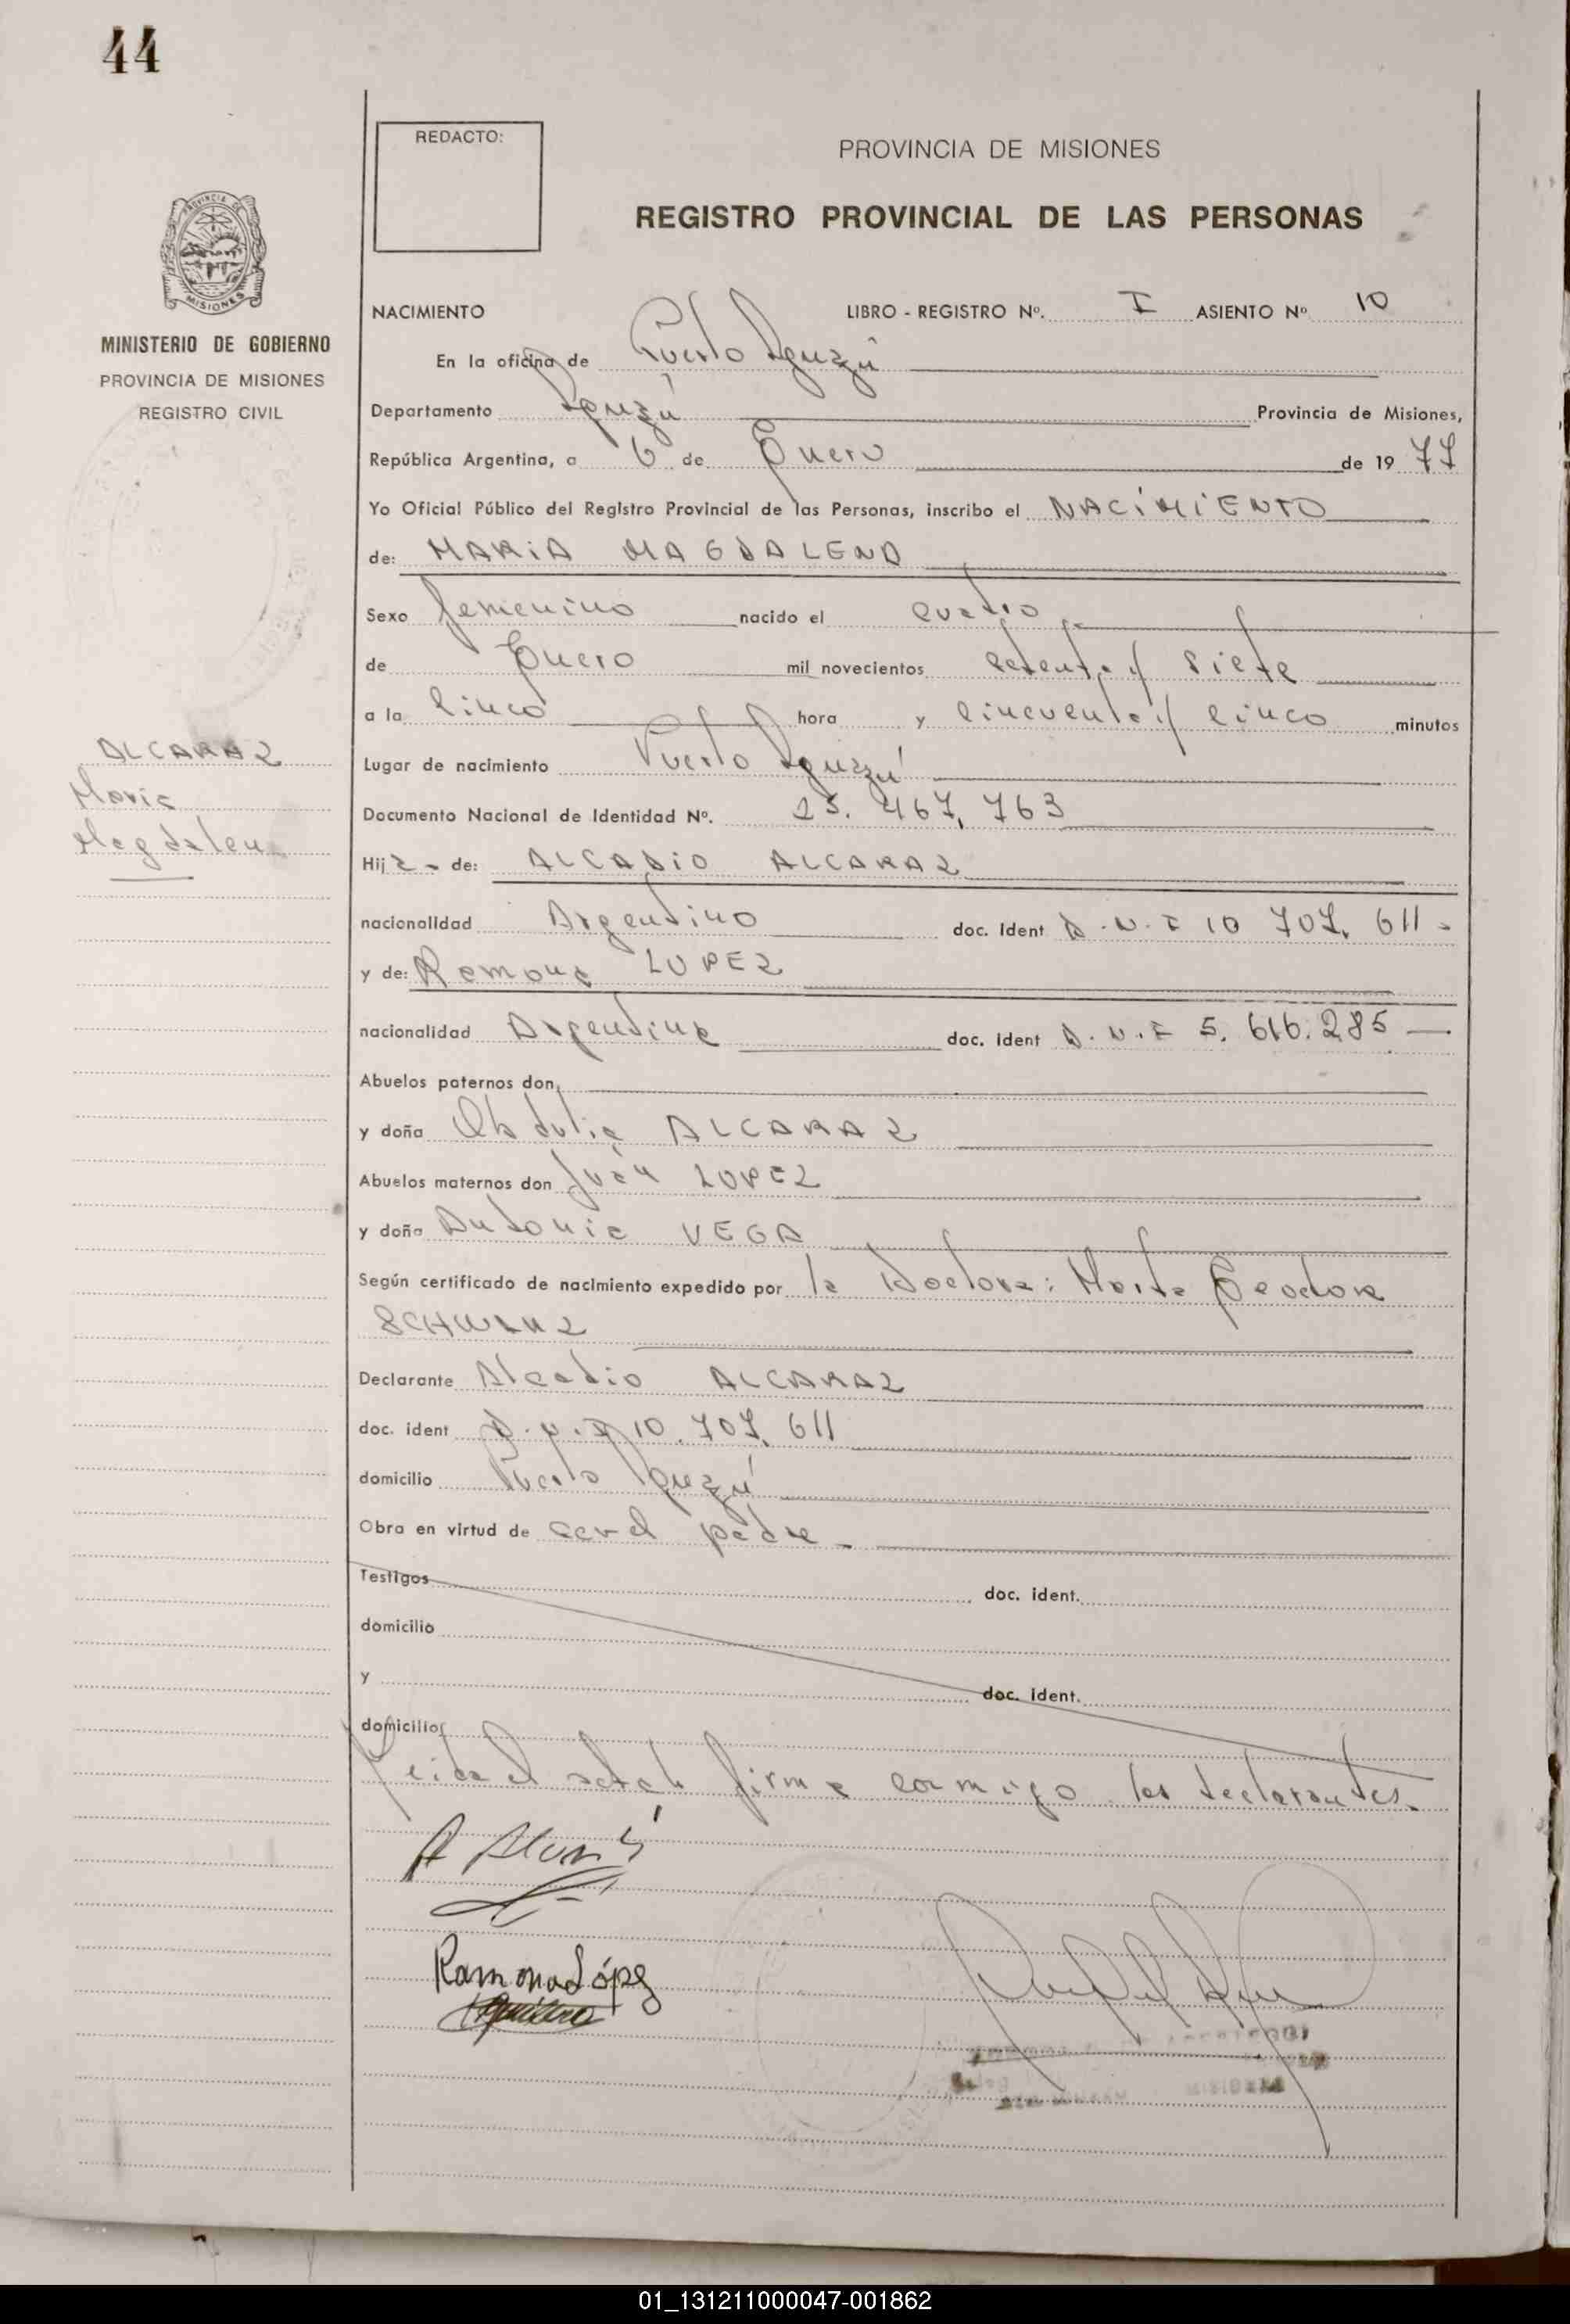 44
REDACTO:
PROVINCIA DE MISIONES
REGISTRO PROVINCIAL DE LAS PERSONAS
PROVINCIA DE
MISIONES
MINISTERIO DE GOBIERNO
PROVINCIA DE MISIONES
REGISTRO CIVIL
NACIMIENTO LIBRO - REGISTRO Nº. I ASIENTO Nº 10
En la oficina de Puerto Iguazú
Departamento Iguazú Provincia de Misiones,
República Argentina, a 6 de Enero de 19 77
Yo Oficial Público del Registro Provincial de las Personas, inscribo el NACIMIENTO
de: MARIA MAGDALENA
Sexo femenino nacido el cuatro
de Enero mil novecientos setenta y siete
a la cinco hora y cincuenta y cinco minutos
Lugar de nacimiento Puerto Iguazú
ALCARAZ
Maria
Magdalena
Documento Nacional de Identidad Nº. 25.467.763
Hija de: ALCADIO ALCARAZ
nacionalidad Argentino doc. Ident D.N.I 10 707.611
y de: Ramona LOPEZ
nacionalidad Argentina doc. Ident D.N.I 5.616.285
Abuelos paternos don
y doña Obdulia ALCARAZ
Abuelos maternos don Juan LOPEZ
y doña Antonia VEGA
Según certificado de nacimiento expedido por la Doctora: Marta Teodora
SCHWARZ
Declarante Alcadio ALCARAZ
doc. ident D.N.I 10.707.611
domicilio Puerto Iguazú
Obra en virtud de ser el padre
Testigos doc. ident.
domicilio
y doc. ident.
domicilio
Leida el acta la firma conmigo los declarantes.
Ramona López
MISIONES
01_131211000047-001862